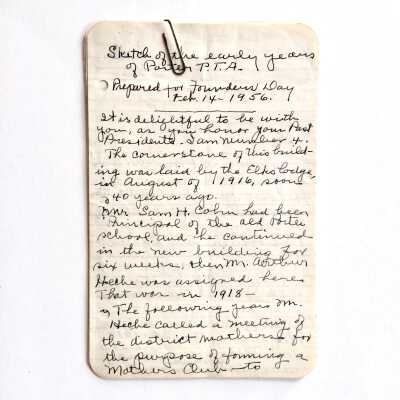 Sketch of the early years
of Porter P.T.A.
Prepared for Founders Day
Feb. 14 - 1956.
It is delightful to be with
you, as you honor your Past
Presidents. I am number 4.
The cornerstone of this build-
ing was laid by the Elks Lodge,
in August of 1916, soon
40 years ago.
Mr. Sam H. Cohn had been
Principal of the old
school, and he continued
in the new building for
six weeks, then Mr. Arthur
Heche was assigned here.
That was in 1918 -
The following years Mr.
Heche called a meeting of
the district mothers for
the purpose of forming a
Mothers Club - to